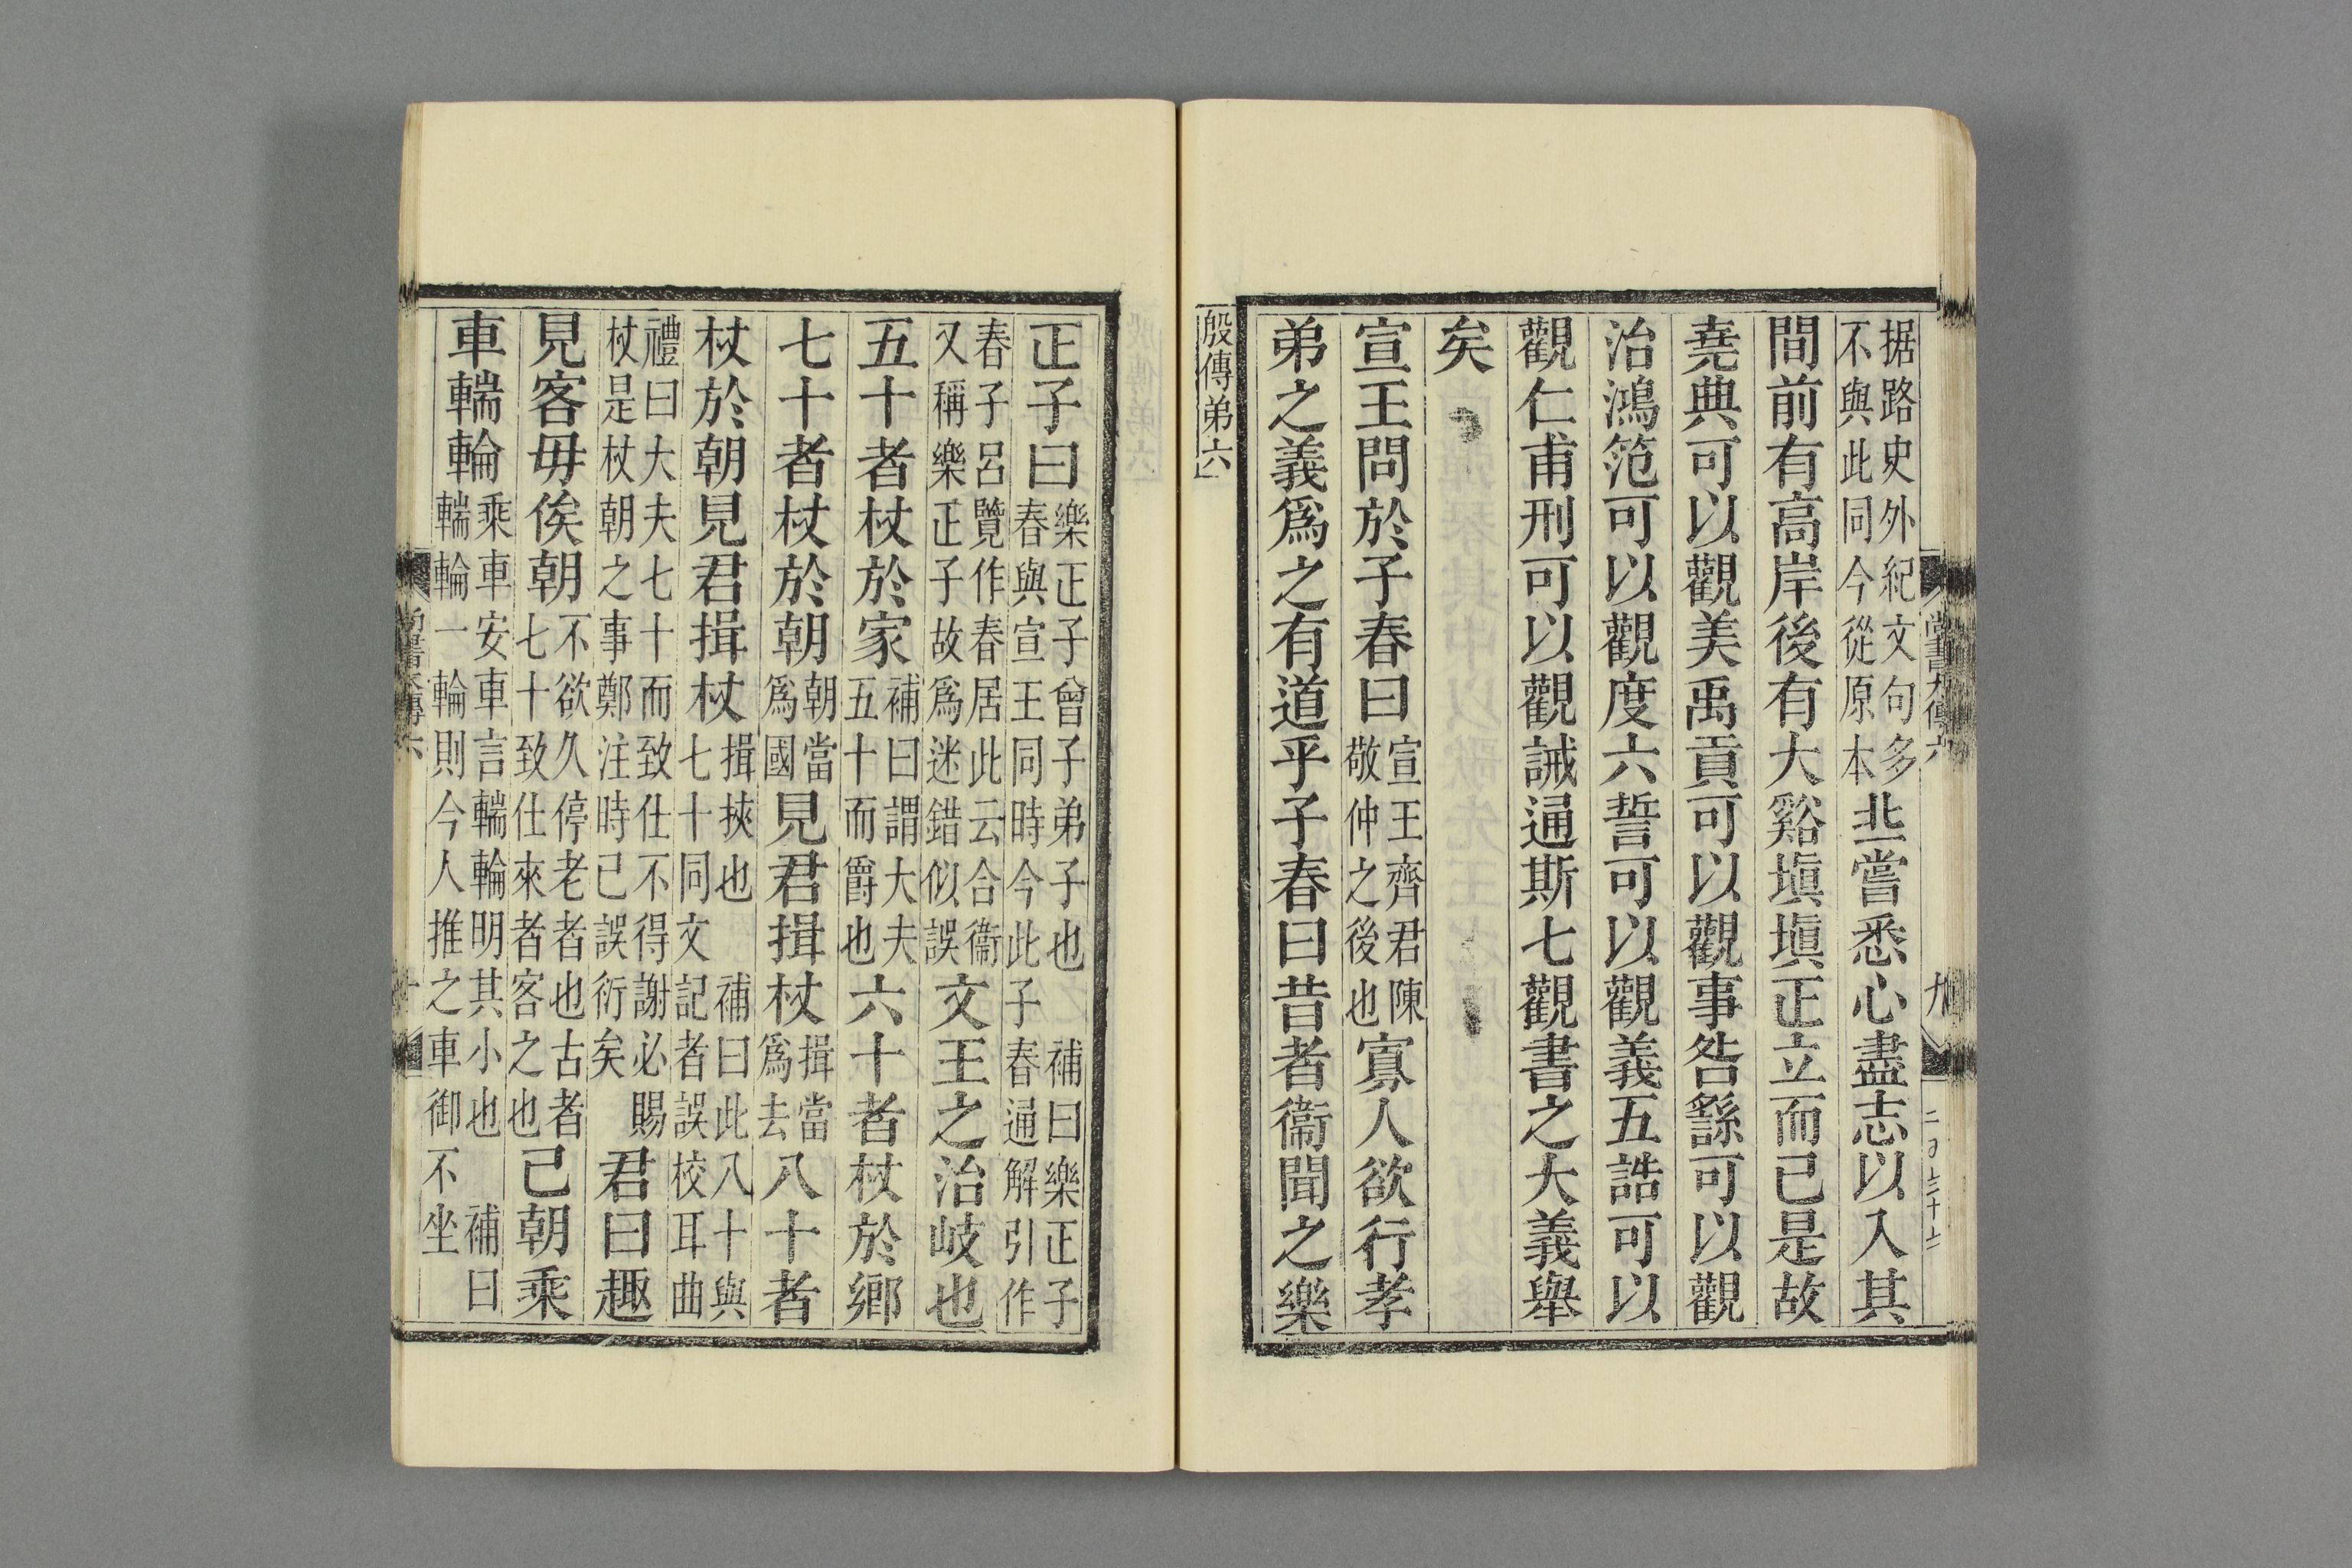 据路史外紀文句多不與此同今從原本丠嘗悉心盡志以入其
間前有高岸後有大谿塡塡正立而已是故
堯典可以觀美禹貢可以觀事咎繇可以觀
治鴻范可以觀度六誓可以觀義五誥可以
觀仁甫刑可以觀誡通斯七觀書之大義舉
矣
宣王問於子春曰宣王齊君陳敬仲之後也寡人欲行孝
弟之義爲之有道乎子春曰昔者衞聞之樂
殷傳弟六
正子曰樂正子曾子弟子也 補曰樂正子春與宣王同時今此子春通解引作
春子呂覽作春居此云合衞又稱樂正子故爲迷錯似誤文王之治岐也
五十者杖於家補曰謂大夫五十而爵也六十者杖於鄉
七十者杖於朝朝當爲國見君揖杖揖當爲去八十者
杖於朝見君揖杖揖挾也 補曰此八十與七十同文記者誤校耳曲
禮曰大夫七十而致仕不得謝必賜杖是杖朝之事鄭注時已誤衍矣君曰趣
見客毋俟朝不欲久停老者也古者七十致仕來者客之也已朝乘
車輲輪乘車安車言輲輪明其小也 補曰輲輪一輪則今人推之車御不坐
尚書大傳六
九